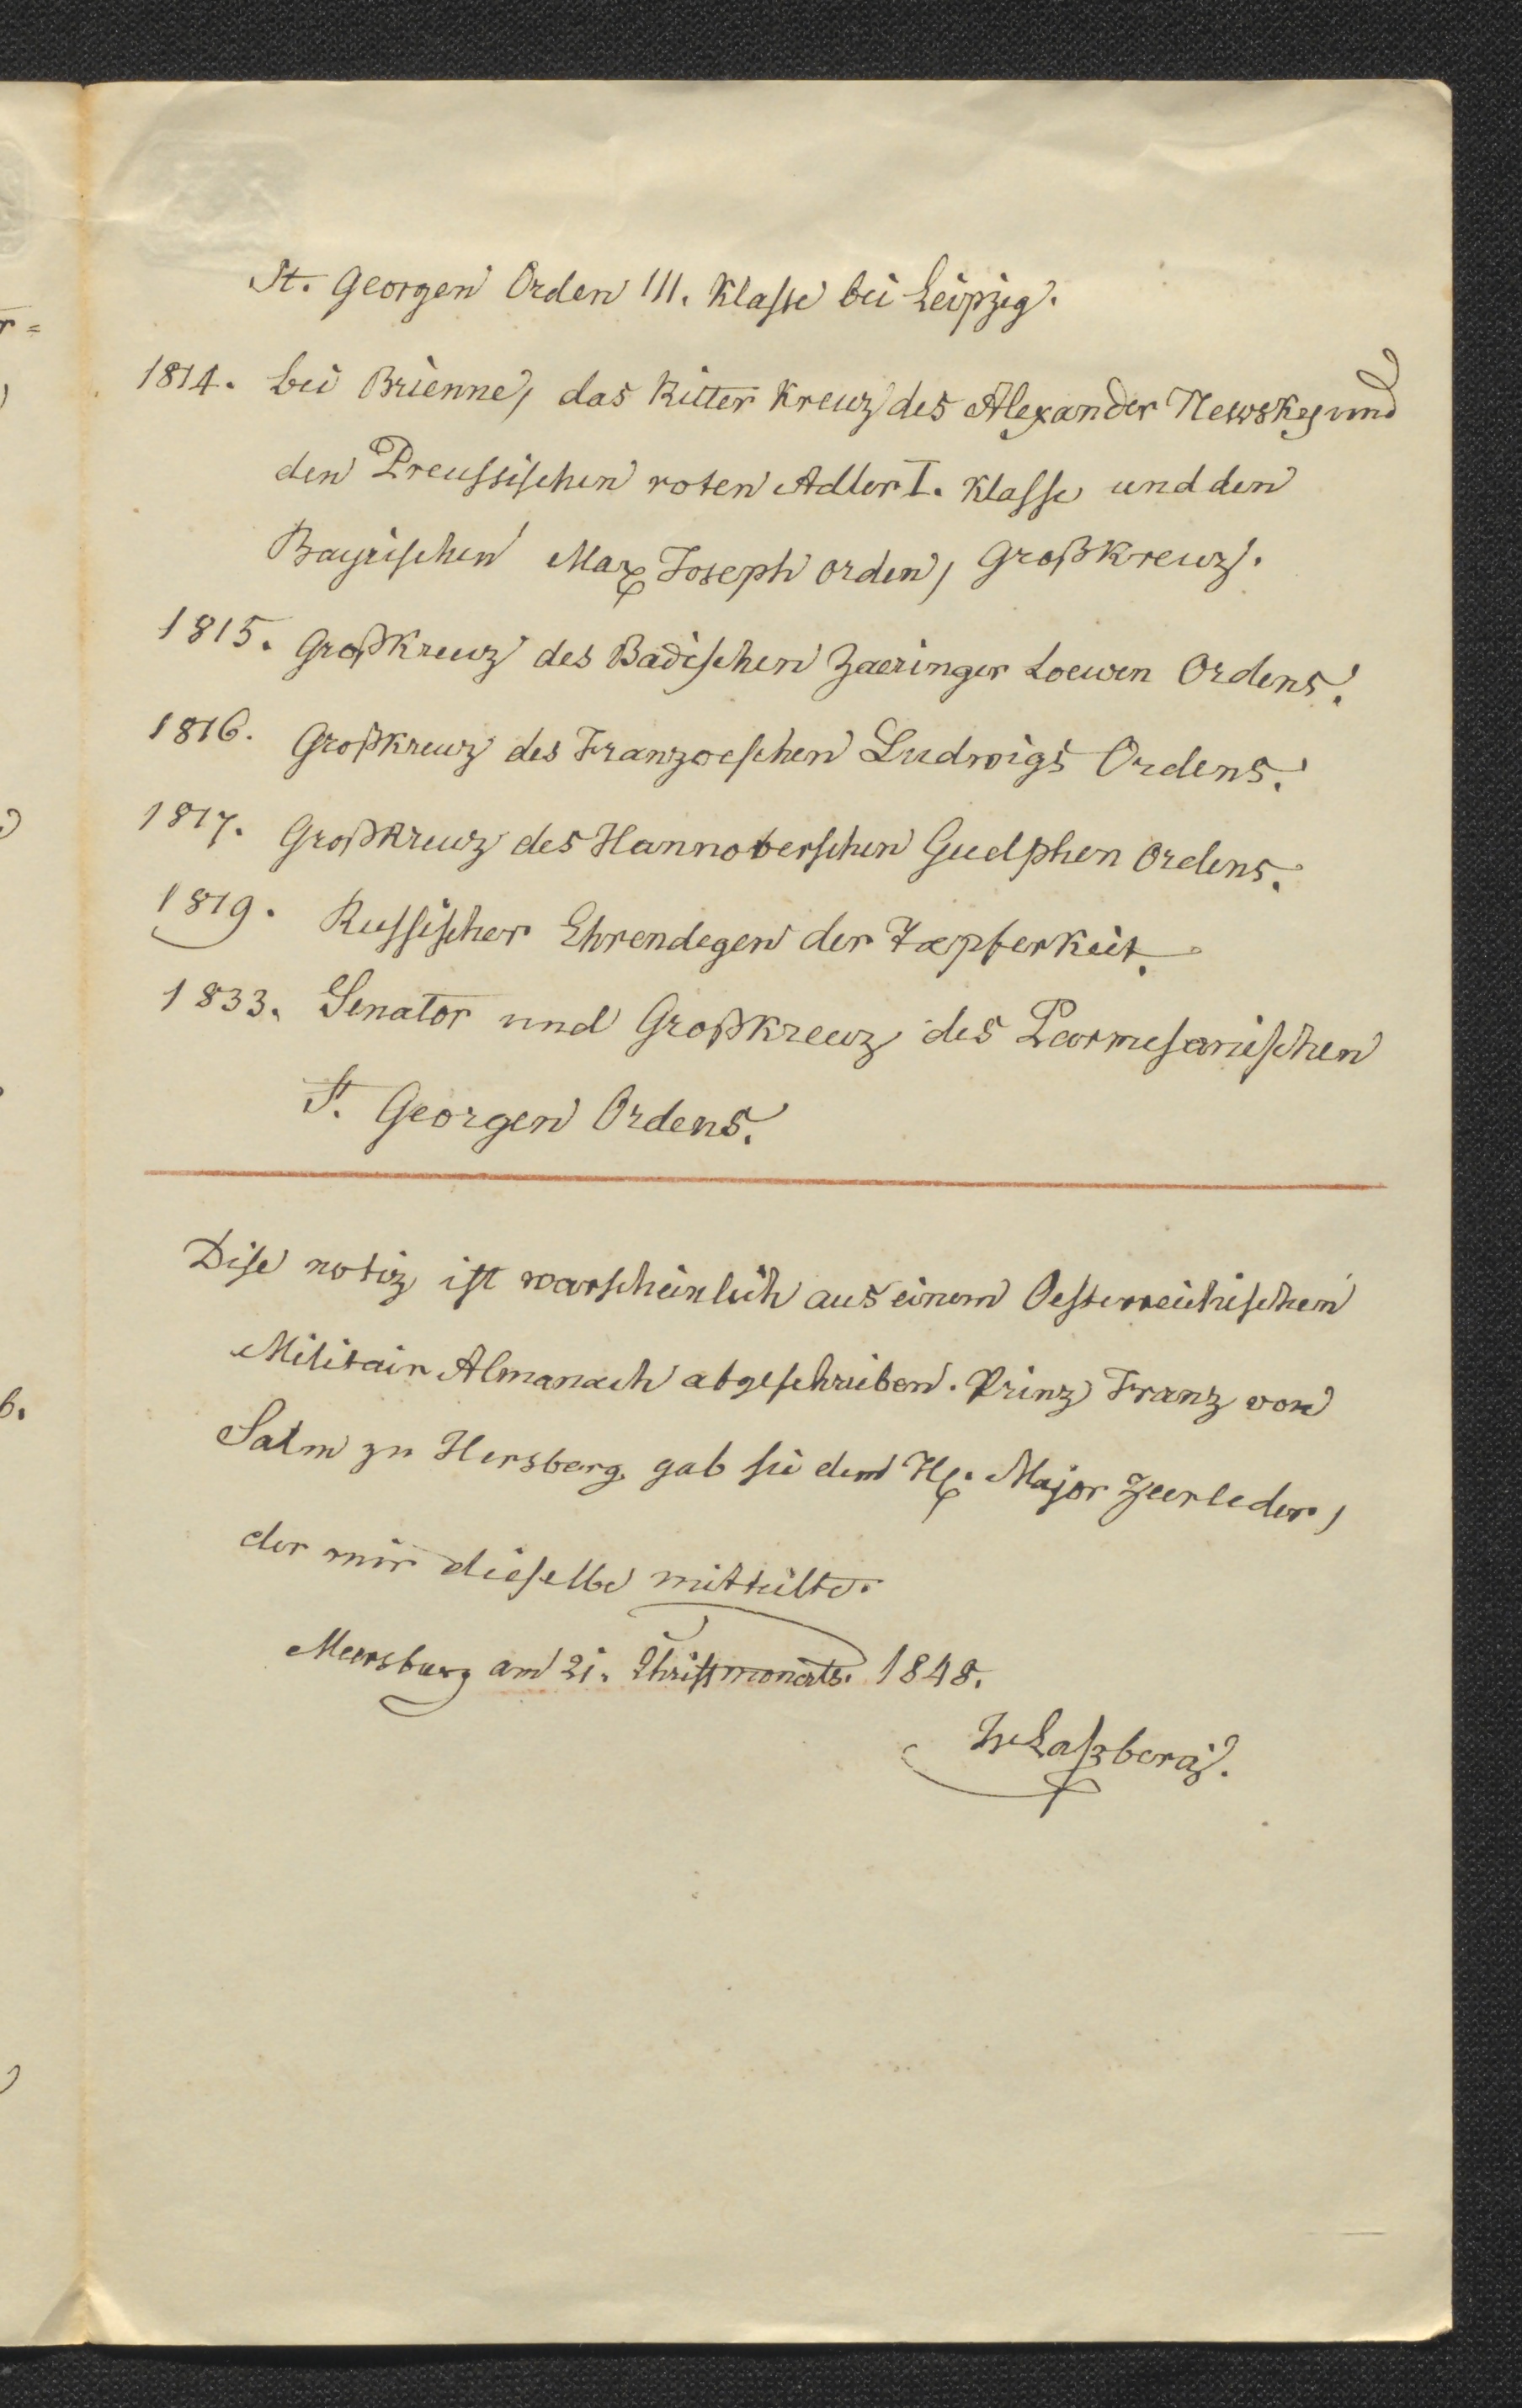 St. Georgen Orden III. Klasse bei Leipzig.
1814. bei Brienne, das Ritter Kreuz des Alexander Newsky und
den Preussischen roten Adler I. Klasse und den
Bayrischen Max Joseph orden, Großkreuz.
1815. Großkreuz des Badischen Zaeringer Loewen Ordens.
1816. Großkreuz des Franzoeschen Ludwigs Ordens.
1817. Großkreuz des Hannoverschen Guelphen Ordens.
1819. Russischer Ehrendegen der Tapferkeit.
1833. Senator und Großkreuz des Parmesanischen
St. Georgen Ordens.
Dise notiz ist warscheinlich aus einem Oesterreichischen
Militair Almanach abgeschrieben. Prinz Franz von
Salm zu Hersberg gab sie dem H. Major Zeerleder,
der mir dieselbe mitteilte.
Meersburg am 21. Christmonats. 1848.
JvLaßberg.